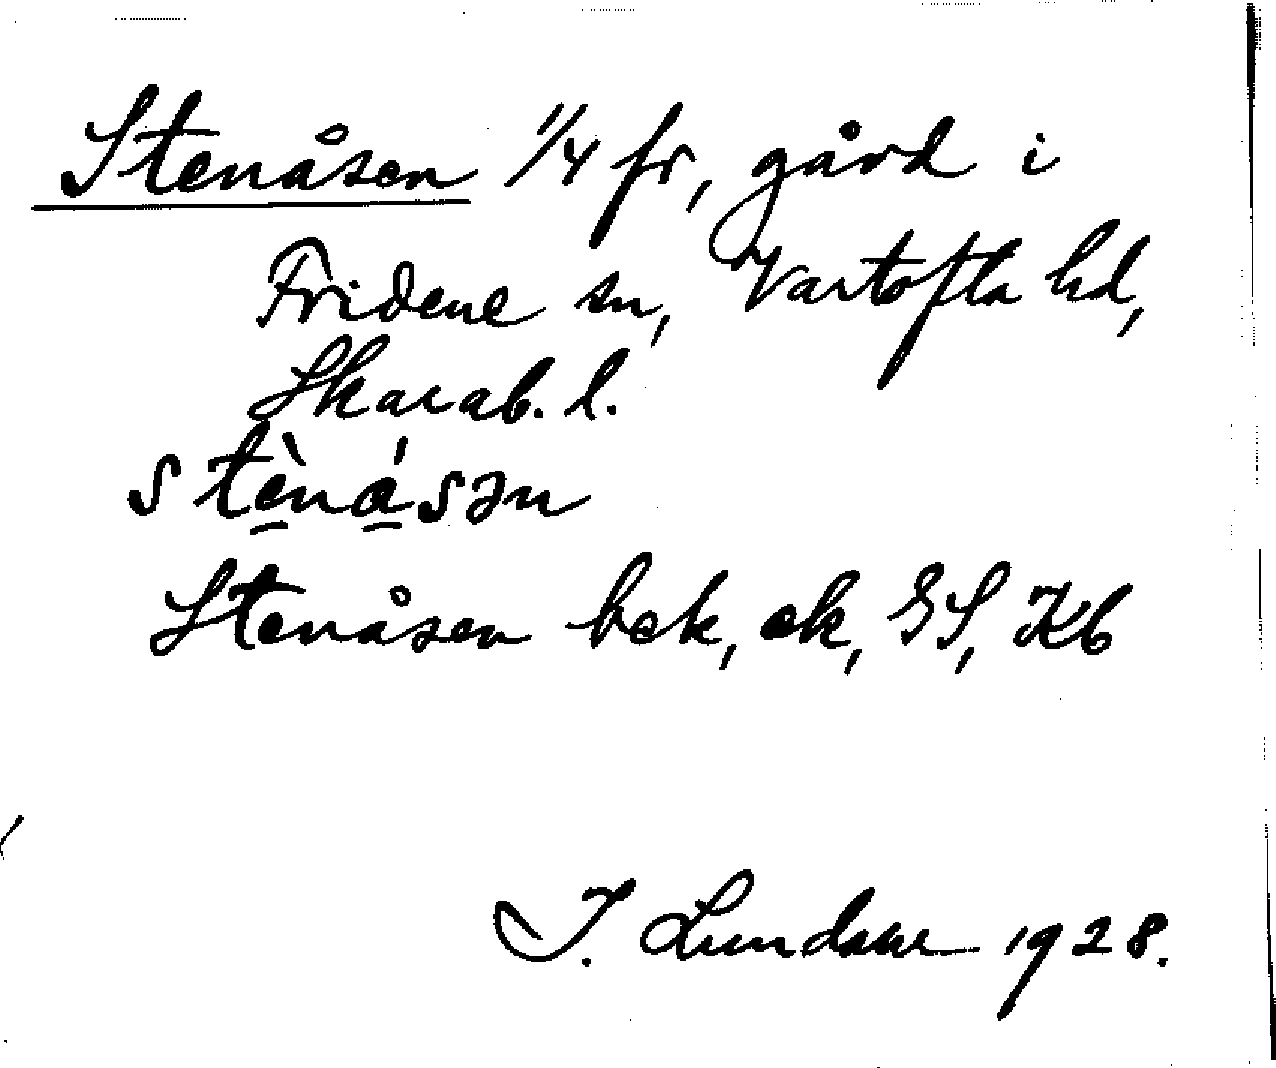 Stenåsen 1/4 fr, gård i
Fridene sn, Vartofta hd,
Skarab. l.
stè̠ná̠sən
Stenåsen bek, ek, GS, Kb
I. Lundahl 1928.